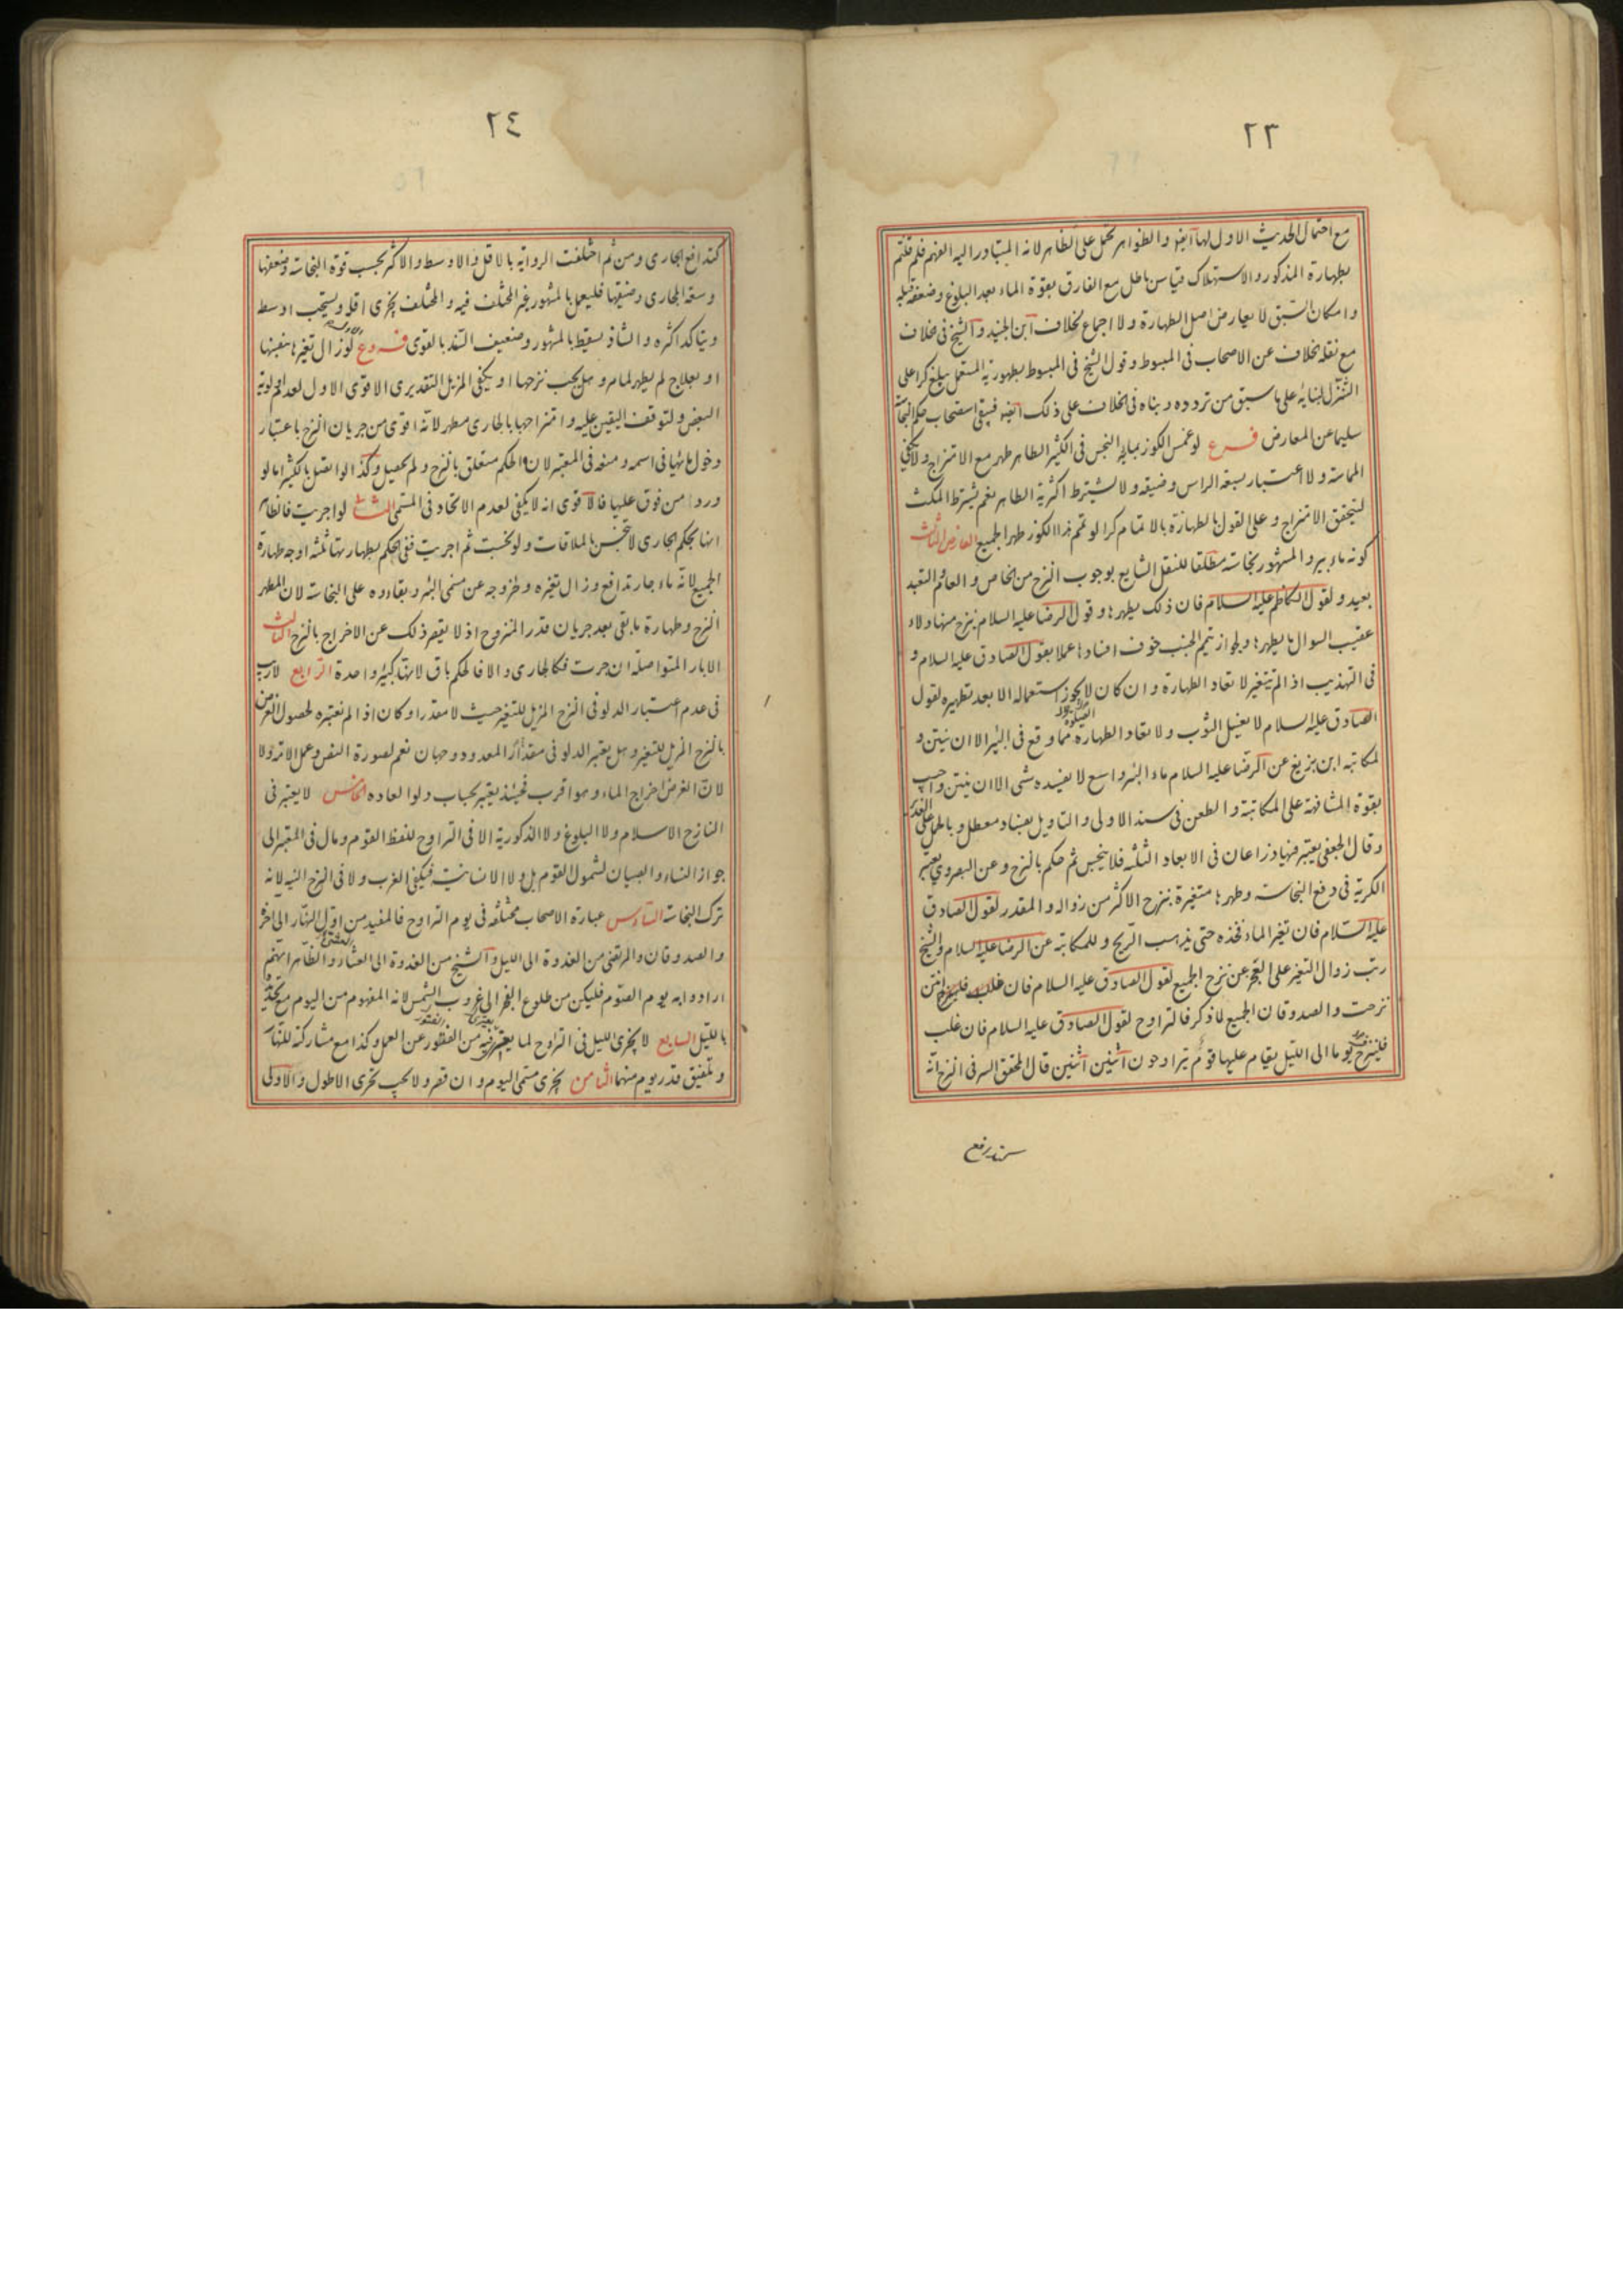 ٢٣
مع احتمال الحديث الاول لها ايضا والظواهر تحمل على الظاهر لانه المتبادر اليه الفهم فلم قلتم
بطهارة المذكور والاستهلاك قياس باطل مع الفارق بقوة الماء بعد البلوغ وضعفه قبله
وامكان السبق لا يعارض اصل الطهارة ولا اجماع لخلاف ابن الجنيد والشيخ في خلاف
مع نقله الخلاف عن الاصحاب في المبسوط وقول الشيخ في المبسوط بطهورية المستعمل ببلوغ كرا على
التنزل لبنائه على ما سبق من تردده وبناه في الخلاف على ذلك ايضا فيبقى استصحاب حكم النجاسة
سليما عن المعارض فــرع لو غمس الكوز بمائه النجس في الكثير الطاهر طهر مع الامتزاج ولا يكفي
المماسة ولا اعتبار بسعة الراس وضيقه ولا يشترط اكثرية الطاهر نعم يشترط المكث
ليتحقق الامتزاج وعلى القول بالطهارة بالاتمام كرا لو تمم هذا الكوز طهر الجميع العارض الثالث
كونه ماء بير والمشهور نجاسته مطلقا للنقل الشايع بوجوب النزح من الخاص والعام والتعبد
بعيد ولقول الكاظم عليه السلام فان ذلك يطهرها وقول الرضا عليه السلام ينزح منها دلاء
عقيب السوال ما يطهرها ولجواز تيمم الجنب خوف افسادها عملا بقول الصادق عليه السلام و
في التهذيب اذا لم يتغير لا تعاد الطهارة وان كان لا يجوز استعماله الا بعد تطهيره لقول
الصادق عليه السلام لا يغسل الثوب ولا يعاد الطهارة الصلوة مما وقع في البئر الا ان ينتن و
لمكاتبة ابن بزيع عن الرضا عليه السلام ماء البئر واسع لا يفسده شي الا ان ينتن واجيب
بقوة المشافهة على المكاتبة والطعن في سند الاولى والتاويل بفساد معطل وبالحمل على الغدير
وقال الجعفي يعتبر فيها ذراعان في الابعاد الثلثه فلا ينجس ثم حكم بالنزح وعن البصروي يعتبر
الكرية في دفع النجاسة وطهرها متغيرة بنزح الاكثر من زواله والمقدر لقول الصادق
عليه السلام فان تغير الماء فخذه حتى يذهب الريح وللمكاتبة عن الرضا عليه السلام والشيخ
رتب زوال التغير على العجز عن نزح الجميع لقول الصادق عليه السلام فان انتن
نزحت والصدوقان الجميع لما ذكر فالتراوح لقول الصادق عليه السلام فان غلب
فلينزح يوما الى الليل يقام عليها قوم يتراوحون اثنين اثنين قال المحقق السر في النزح انه
٢٤
كتدافع الجاري ومن ثم اختلفت الرواية بالاقل والاوسط والاكثر بحسب قوة النجاسة وضعفها
وسعة المجاري وضيقها فليعمل بالمشهور غير المختلف فيه والمختلف يجزي اقله ويستحب اوسط
ويتاكد اكثره والشاذ يسقط بالمشهور وضعيف السند بالقوى فــروع لو زال تغيرها بنفسها
او بعلاج لم يطهر لما مر وهل يجب نزحها او يكفي المزيل التقديري الاقوى الاول لعدم اولوية
البعض ولتوقف اليقين عليه وامتزاجها بالجاري مطهر لانه اقوى من جريان النزح باعتبار
دخول مائها في اسمه ومنعه في المعتبر لان الحكم متعلق بالنزح ولم يحصل وكذا لو اتصل بالكثير اما لو
وردا من فوق عليها فالاقوى انه لا يكفي لعدم الاتحاد في المسمى الثاني لو اجريت فالظاهر
انها بحكم الجاري لا تنجس بالملاقات ولو نجست ثم اجريت ففي الحكم بطهارتها ثلثه اوجه طهارة
الجميع لانه ماء جار تدافع وزال تغيره وخروجه عن مسمى البئر وبقاءه على النجاسة لان المطهر
النزح وطهارة ما بقى بعد جريان قدر المنزوح اذ لا يقصر ذلك عن الاخراج بالنزح الثالث
الابار المتواصلة ان جرت فكالجاري والا فالحكم باق لانها كبئر واحدة الرابع لا ريب
في عدم اعتبار الدلو في النزح المزيل للتغير حيث لا مقدر او كان اذا لم نعتبره لحصول الغرض
بالنزح المزيل للتغير وهل يعتبر الدلو في مقدار المعدود وجهان نعم لصورة النص وعمل الاثر ولا
لان الغرض اخراج الماء وهو اقرب فحينئذ يعتبر بحساب دلو العاده الخامس لا يعتبر في
النازح الاسلام ولا البلوغ ولا الذكورية الا في التراوح للفظ القوم ومال في المعتبر الى
جواز النساء والصبيان لشمول القوم بل ولا الانسانيت فيكفي الغرب ولا في النزح النيه لانه
ترك النجاسة السادس عبارة الاصحاب مختلفه في يوم التراوح فالمفيد من اول النهار الى اخره
والصدوقان والمرتضى من الغدوة الى الليل والشيخ من الغدوة الى العشاء والظاهر انهم
ارادوا به يوم الصوم فليكن من طلوع الفجر الى غروب الشمس لانه المفهوم من اليوم مع تحديده
بالليل السابع لا يجزي الليل في التراوح لما يعتري فيه من الفتور عن العمل وكذا مع مشاركة للنهار
وتلفيق قدر يوم منهما الثامن يجزي مسمى اليوم وان قصر ولا يجب تحرى الاطول والاولى